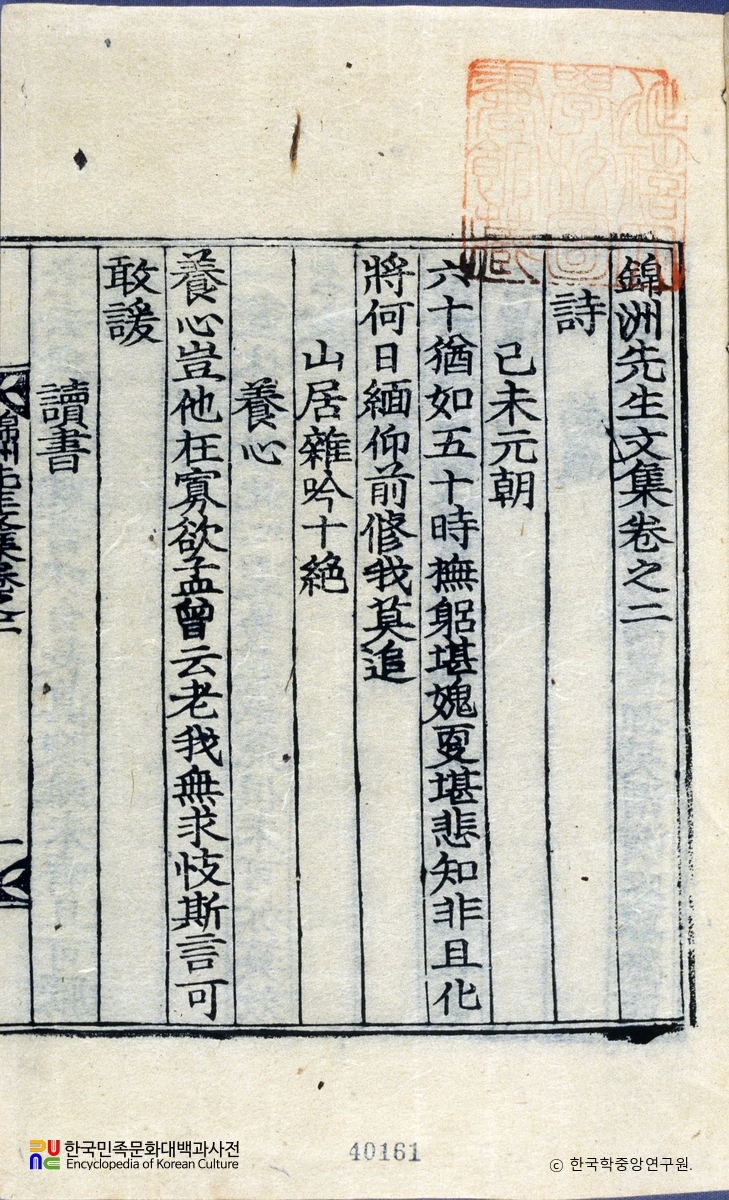 錦洲先生文集卷之二
詩
己未元朝
六十猶如五十時撫躬堪媿更堪悲知非且化
將何日緬仰前修我莫追
山居雜吟十絶
養心
養心豈他在寡欲孟曾云老我無求忮斯言可
敢諼
讀書
錦洲先生文集卷之二
一
한국민족문화대백과사전
Encyclopedia of Korean Culture
40161
© 한국학중앙연구원.